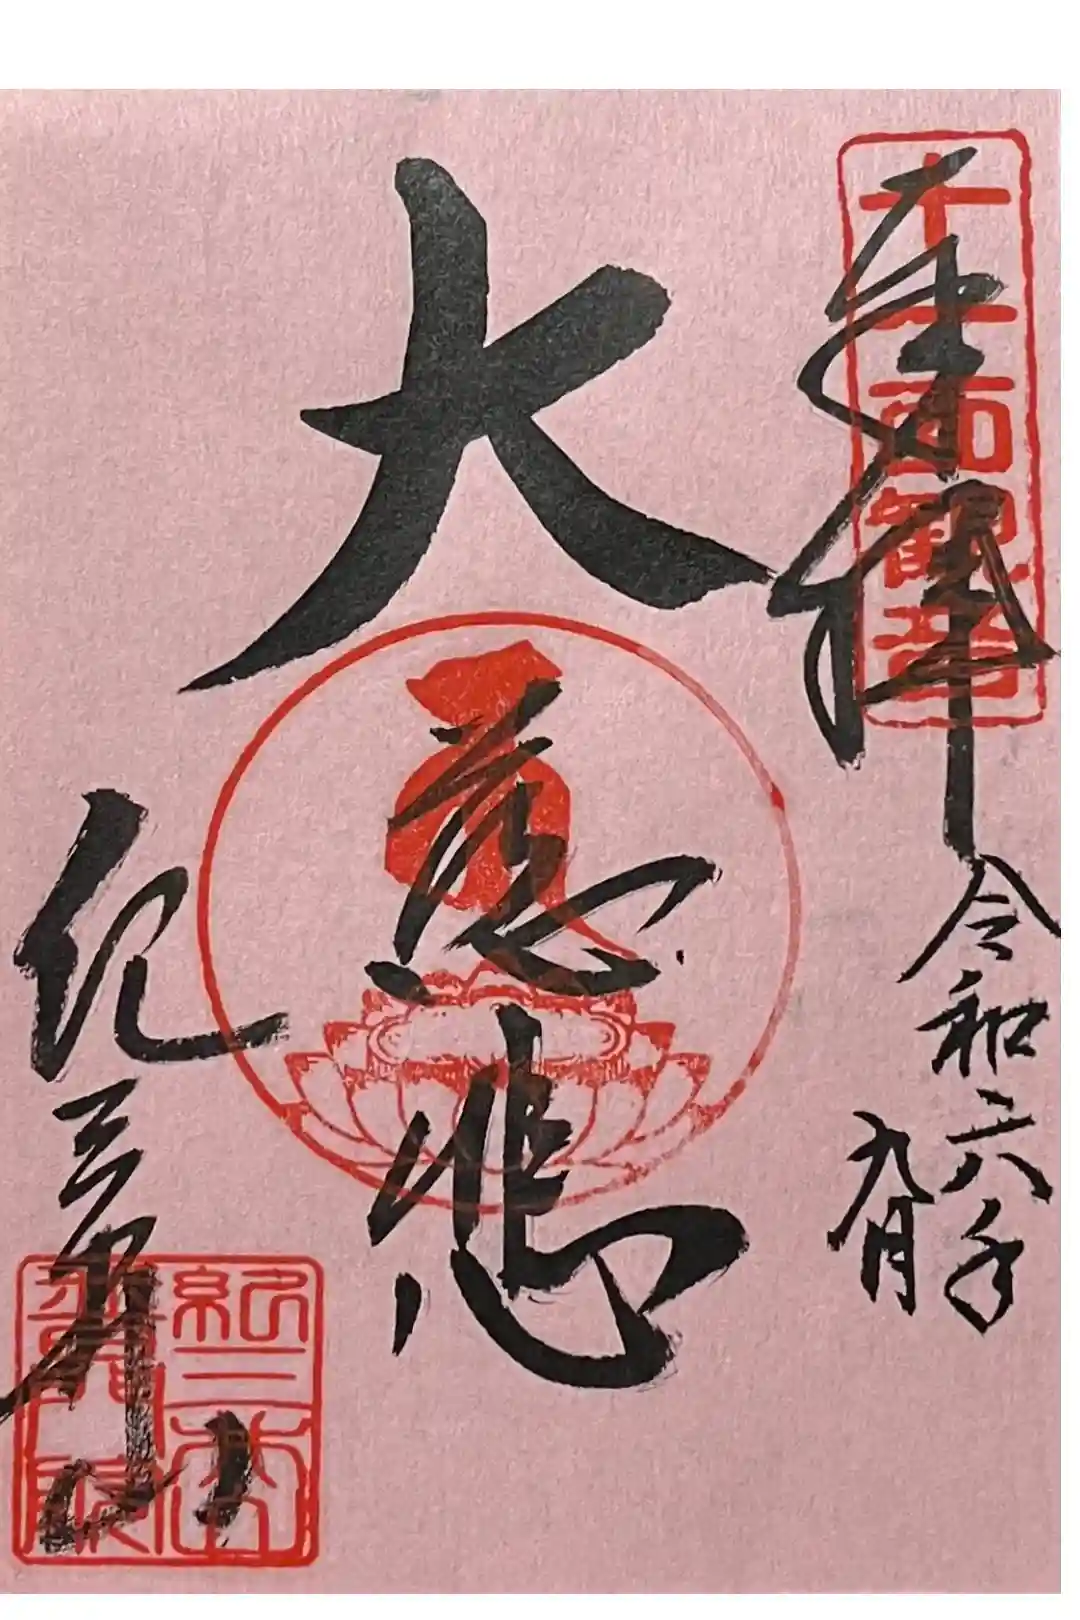 奉拝
十一面観音
令和六年
九月
大慈悲
紀三井山
紀三井山